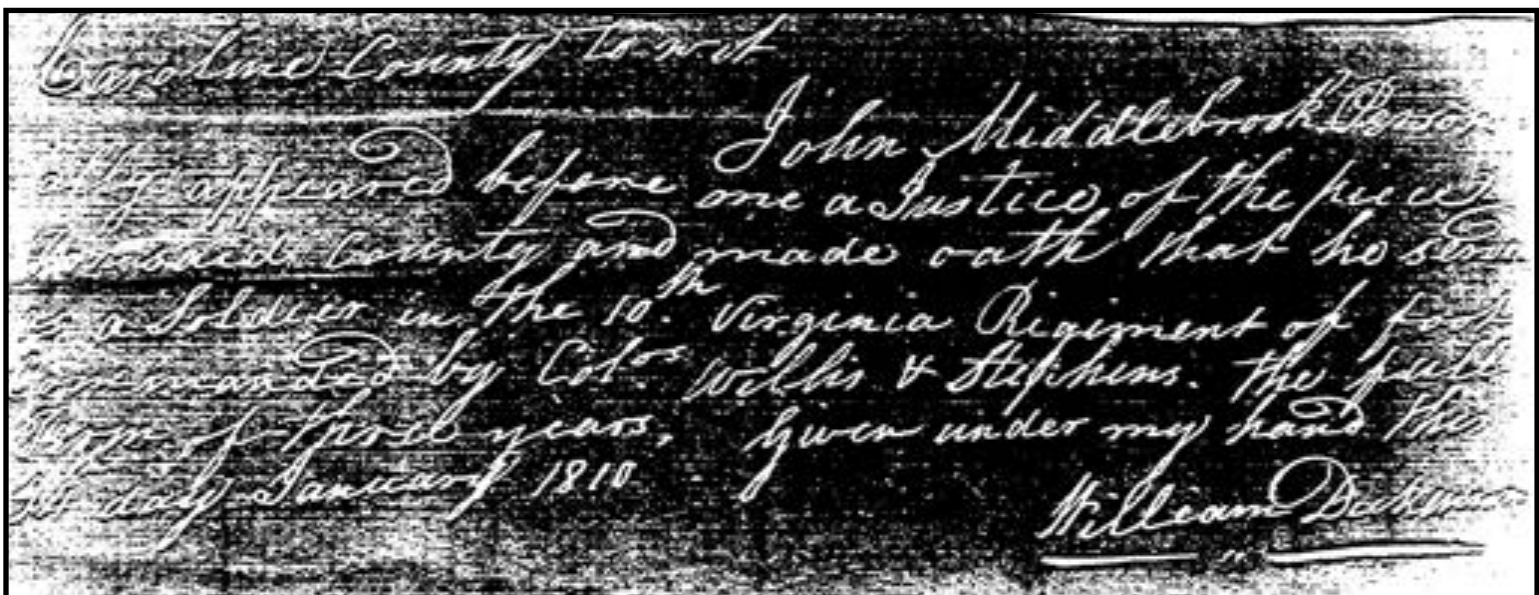 Caroline County to wit
John Middlebrook Person
ally appeared before me a Justice of the peece
aforesaid County and made oath that he serv
as a Soldier in the 10.th Virginia Rigement of foot
Commanded by Colos. Willis & Stephens. the full
Term of three years, Given under my hand this
day January 1810
William